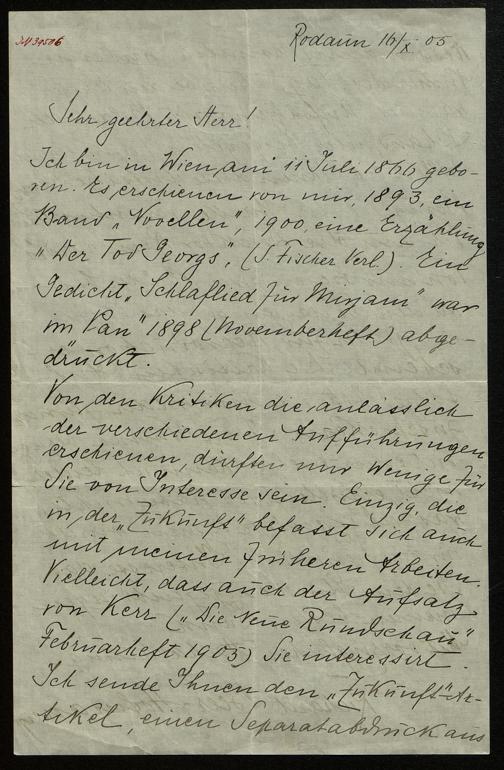 Rodaun 16/X 05
Sehr geehrter Herr!
Ich bin in Wien am 11 Juli 1866 gebo-
ren. Es erschienen von mir, 1893, ein
Band „Novellen", 1900, eine Erzählung
„Der Tod Georgs", (S. Fischer Verl.). Ein
Gedicht „Schlaflied für Mirjam" war
im Pan" 1898 (Novemberheft) abge-
druckt.
Von den Kritiken die anlässlich
der verschiedenen Aufführungen
erschienen, dürften nur Wenige für
Sie von Interesse sein. Einzig, die
in der „Zukunft" befasst sich auch
mit meinen früheren Arbeiten.
Vielleicht, dass auch der Aufsatz
von Kerr („Die Neue Rundschau"
Februarheft 1905) Sie interessirt.
Ich sende Ihnen den „Zukunft"-Ar-
tikel, einen Separatabdruck aus